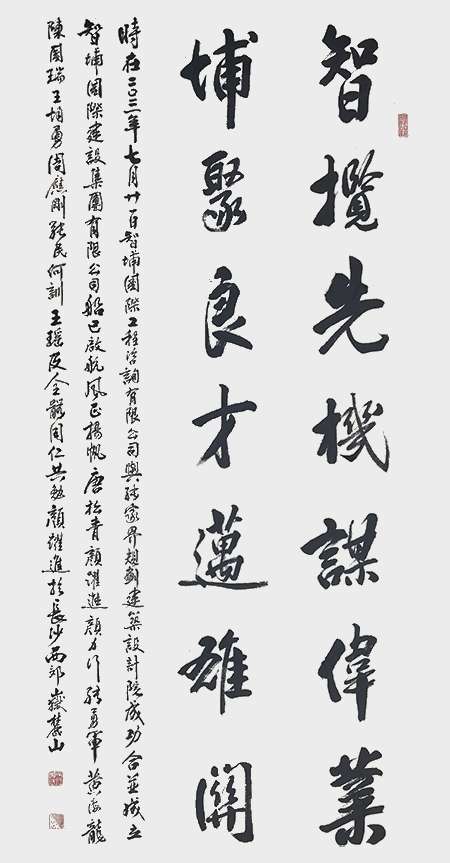 智攬先機謀偉業
埔聚良才邁雄關
時在二〇二一年七月廿日智埔國際工程咨詢有限公司與張家界規劃建築設計院成功合並成立
智埔國際建設集團有限公司船已啟航風正揚帆唐松青顏躍進顏力行張勇軍黃海龍
陳國瑞王增勇周應剛張民何訓王瑤及全體同仁共勉顏躍進於長沙西郊嶽麓山